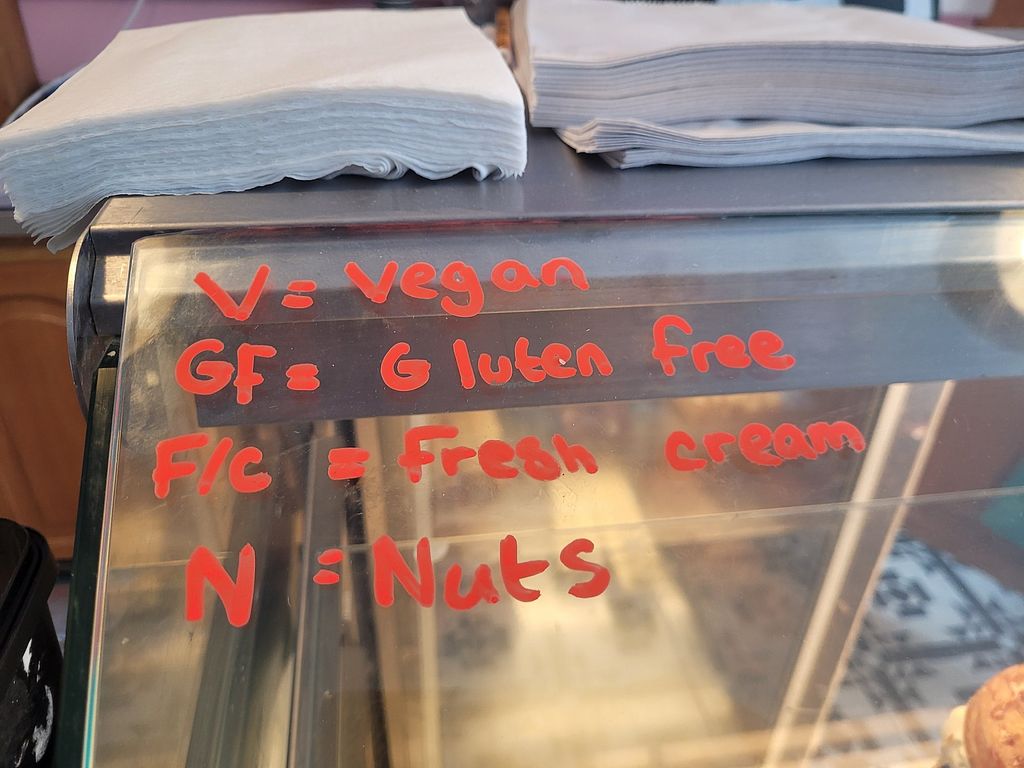 V = Vegan
GF = Gluten free
F/c = fresh cream
N = Nuts